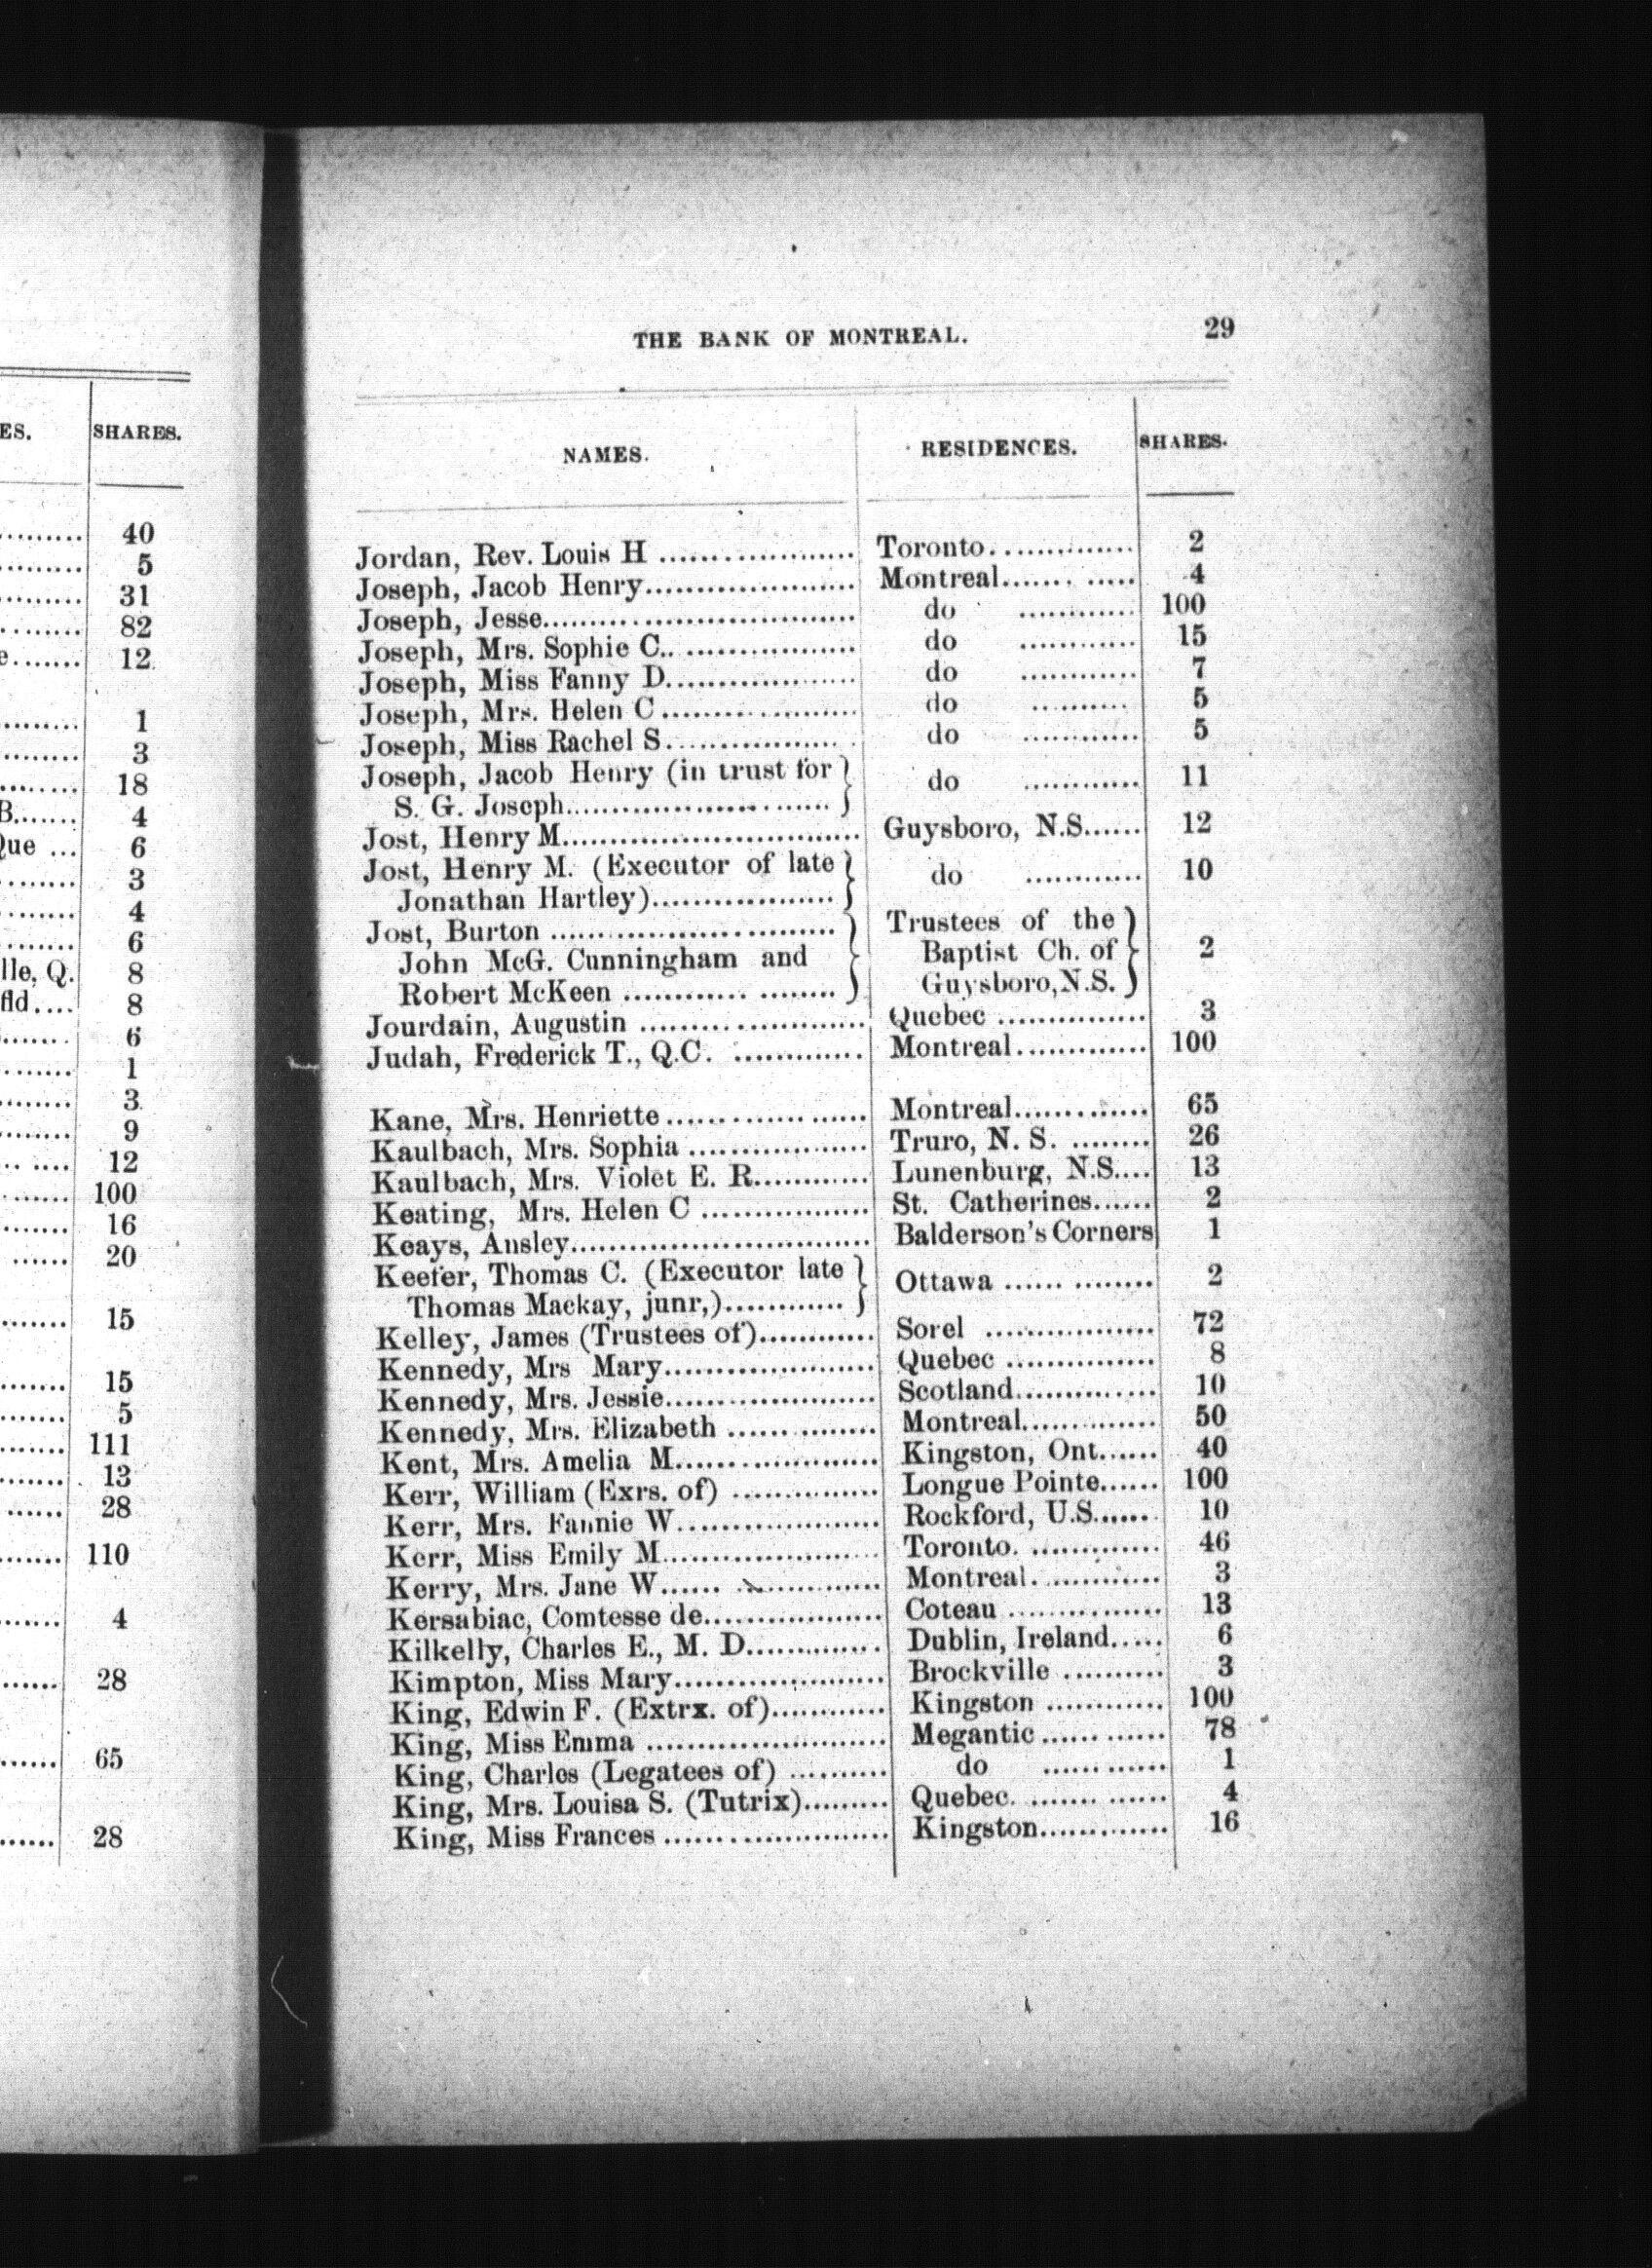 ES.
SHARES.
40
5
31
82
e....... 12
1
3
18
B....... 4
Que ... 6
3
4
6
lle, Q. 8
fld.... 8
6
1
3
9
12
100
16
20
15
15
5
111
13
28
110
4
28
65
28
THE BANK OF MONTREAL. 29
NAMES. RESIDENCES. SHARES.
Jordan, Rev. Louis H .................... Toronto............... 2
Joseph, Jacob Henry...................... Montreal....... ..... 4
Joseph, Jesse................................ do ............ 100
Joseph, Mrs. Sophie C.. .................. do ............ 15
Joseph, Miss Fanny D.................... do ............ 7
Joseph, Mrs. Helen C .................... do .......... 5
Joseph, Miss Rachel S.................. do ............ 5
Joseph, Jacob Henry (in trust for
S. G. Joseph........................... do ............ 11
Jost, Henry M............................... Guysboro, N.S...... 12
Jost, Henry M. (Executor of late
Jonathan Hartley)................... do ............ 10
Jost, Burton ............................. Trustees of the
John McG. Cunningham and Baptist Ch. of 2
Robert McKeen ............ ........ Guysboro, N.S.
Jourdain, Augustin ........................ Quebec ............... 3
Judah, Frederick T., Q.C. ............. Montreal............. 100
Kane, Mrs. Henriette..................... Montreal............. 65
Kaulbach, Mrs. Sophia .................. Truro, N. S. ........ 26
Kaulbach, Mrs. Violet E. R............ Lunenburg, N.S.... 13
Keating, Mrs. Helen C .................. St. Catherines...... 2
Keays, Ansley............................... Balderson's Corners 1
Keefer, Thomas C. (Executor late
Thomas Mackay, junr,)............ Ottawa ...... ........ 2
Kelley, James (Trustees of)............ Sorel ................. 72
Kennedy, Mrs Mary...................... Quebec ............... 8
Kennedy, Mrs. Jessie...................... Scotland............... 10
Kennedy, Mrs. Elizabeth ............... Montreal.............. 50
Kent, Mrs. Amelia M..................... Kingston, Ont...... 40
Kerr, William (Exrs. of) ............... Longue Pointe...... 100
Kerr, Mrs. Fannie W..................... Rockford, U.S...... 10
Kerr, Miss Emily M....................... Toronto. ............. 46
Kerry, Mrs. Jane W...... ............... Montreal.............. 3
Kersabiac, Comtesse de................... Coteau ................ 13
Kilkelly, Charles E., M. D.............. Dublin, Ireland..... 6
Kimpton, Miss Mary...................... Brockville .......... 3
King, Edwin F. (Extrx. of)............ Kingston ............ 100
King, Miss Emma ......................... Megantic ............ 78
King, Charles (Legatees of) .......... do ............ 1
King, Mrs. Louisa S. (Tutrix)......... Quebec. ....... ...... 4
King, Miss Frances ........................ Kingston............. 16